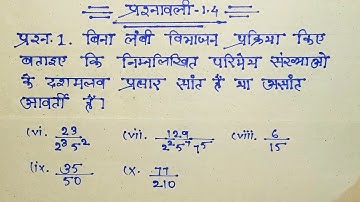 प्रश्नावली-1.4
प्रश्न 1. बिना लंबी विभाजन प्रक्रिया किए
बताइए कि निम्नलिखित परिमेय संख्याओं
के दशमलव प्रसार सांत हैं या असांत
आवर्ती हैं।
(vi. 23/2³5² (vii. 129/2²5⁷7⁵ (viii. 6/15
(ix. 35/50 (x. 77/210